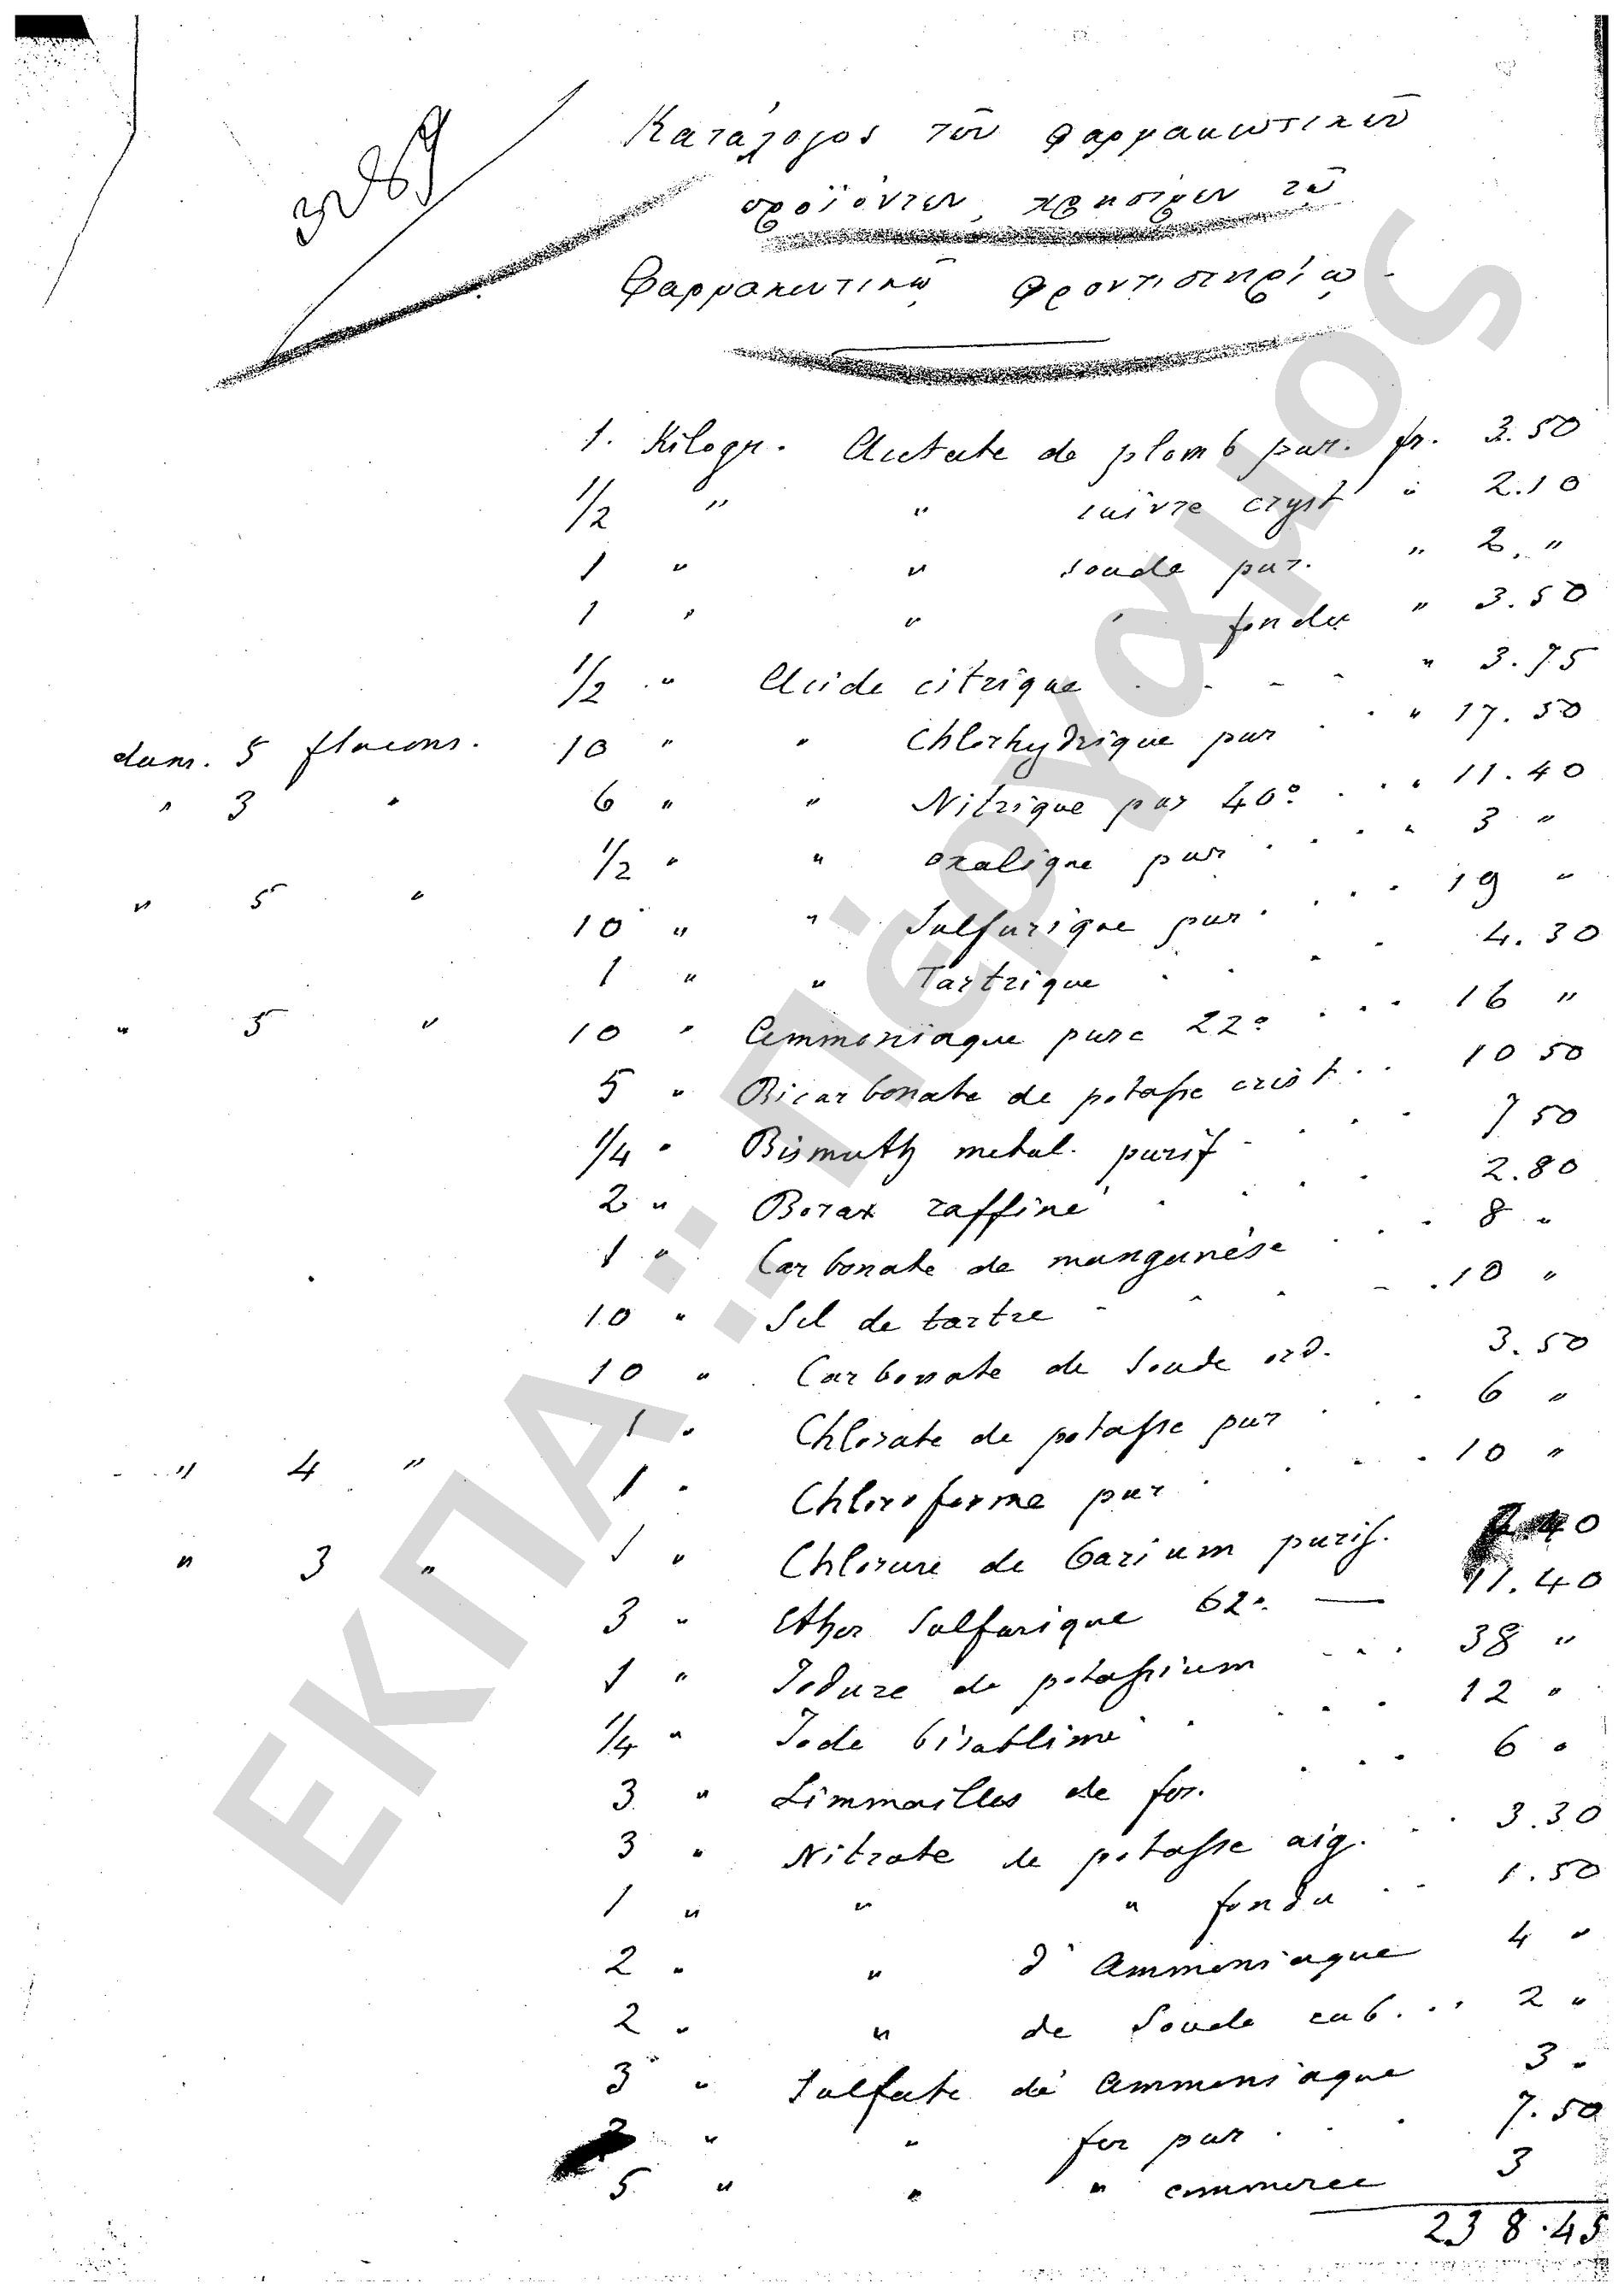 3089
Κατάλογος τῶν φαρμακωτικῶν
προϊόντων, χρησίμων τῷ
Φαρμακευτικῷ φροντιστηρίῳ -
1. Kilogr. Acetate de plomb pur. fr. 3.50
1/2 " " cuivre cryst " 2.10
1 " " soude pur. " 2. "
1 " " " fondu " 3.50
1/2 " Acide citrique . - - - " 3.75
dans. 5 flacons. 10 " " Chlorhydrique pur . . " 17.50
" 3 " 6 " " Nitrique pur 40° . . " 11.40
1/2 " " oxalique pur . . . " 3 "
" 5 " 10 " " Sulfurique pur . . . . 19 "
1 " " Tartrique . . . . 4.30
" 5 " 10 " Ammoniaque pure 22° . . . 16 "
5 " Bicarbonate de potasse crist . . 10 50
1/4 " Bismuth metal. purif - . . - 7 50
2 " Borax raffiné . . . . 2.80
1 " Carbonate de manganèse . . . 8 "
10 " Sel de tartre - - - - . 10 "
10 " Carbonate de Soude ord. 3.50
1 " Chlorate de potasse pur . . . 6 "
" 4 " 1 " Chloroforme pur . . . . 10 "
" 3 " 1 " Chlorure de barium purif. 40
3 " Ether Sulfurique 62°. — 11.40
1 " Iodure de potassium - . . 38 "
1/4 " Iode bisublimé . . . . 12 "
3 " Limmailles de fer. . . . 6 "
3 " Nitrate de potasse aig. . . 3.30
1 " " " fondu . - 1.50
2 " " d'Ammoniaque 4 "
2 " " de Soude cub. . . 2 "
3 " Sulfate de Ammoniaque 3 "
" " fer pur . . . 7.50
5 " " " commerce 3
238.45
ΕΚΠΑ:: Πέργαμος